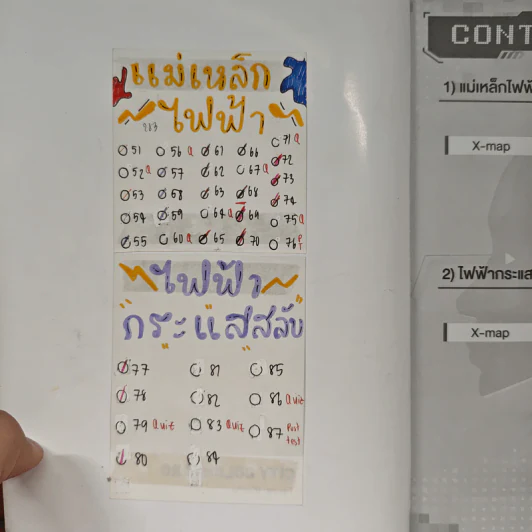 แม่เหล็ก
ไฟฟ้า
51 56 Q 61 66 71 Q
52 Q 57 62 67 Q 72
53 58 63 68 73
54 59 64 Q 69 74
55 60 Q 65 70 75 Q
76 P T
ไฟฟ้า
กระแสสลับ
77 81 85
78 82 86 Quiz
79 Quiz 83 Quiz 87 Post test
80 84
CONT
1) แม่เหล็กไฟฟ้
X-map
2) ไฟฟ้ากระแส
X-map